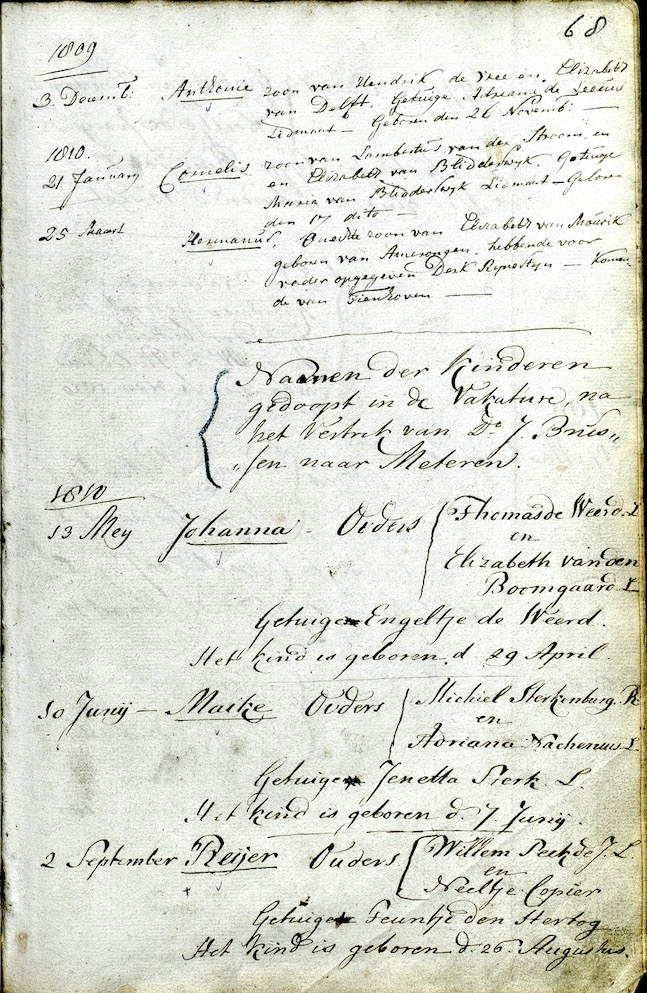 68
1809
3. Decemb: Anthonie zoon van Hendrik de Vree en Elizabeth
van Delft, Getuige Adriana de Leeuw
Lidmaat — Geboren den 26 Novemb: —
1810.
21 January Cornelis zoon van Lambertus van der Stroom, en
en Elizabet van Blidderswyk, Getuige
Maria van Blidderswyk Lidmaat — Geboren
den 17 dito —
25 Maart Hermanus, Onechte zoon van Elizabeth van Maurik
geboren van Amerongen, hebbende voor
vader opgegeven Derk — Komen-
de van Tienhoven —
Namen der Kinderen
gedoopt in de Vakature, na
het Vertrek van Ds J. Bruis„
„sen naar Meteren.
1810
13 Mey Johanna - Ouders Thomas de Weerd. L
en
Elizabeth van den
Boomgaard. L
Getuige Engeltje de Weerd.
Het kind is geboren. d 29 April.
10 Junij — Maike Ouders Michiel Sterkenburg. R
en
Adriana Nachenius L.
Getuige Jenetta Sterk. L.
Het kind is geboren d. 7. Junij.
2 September Reijer Ouders Willem Peek de J. L
en
Neeltje Copier
Getuige Teuntje den Hertog
Het kind is geboren d. 26. Augustus.